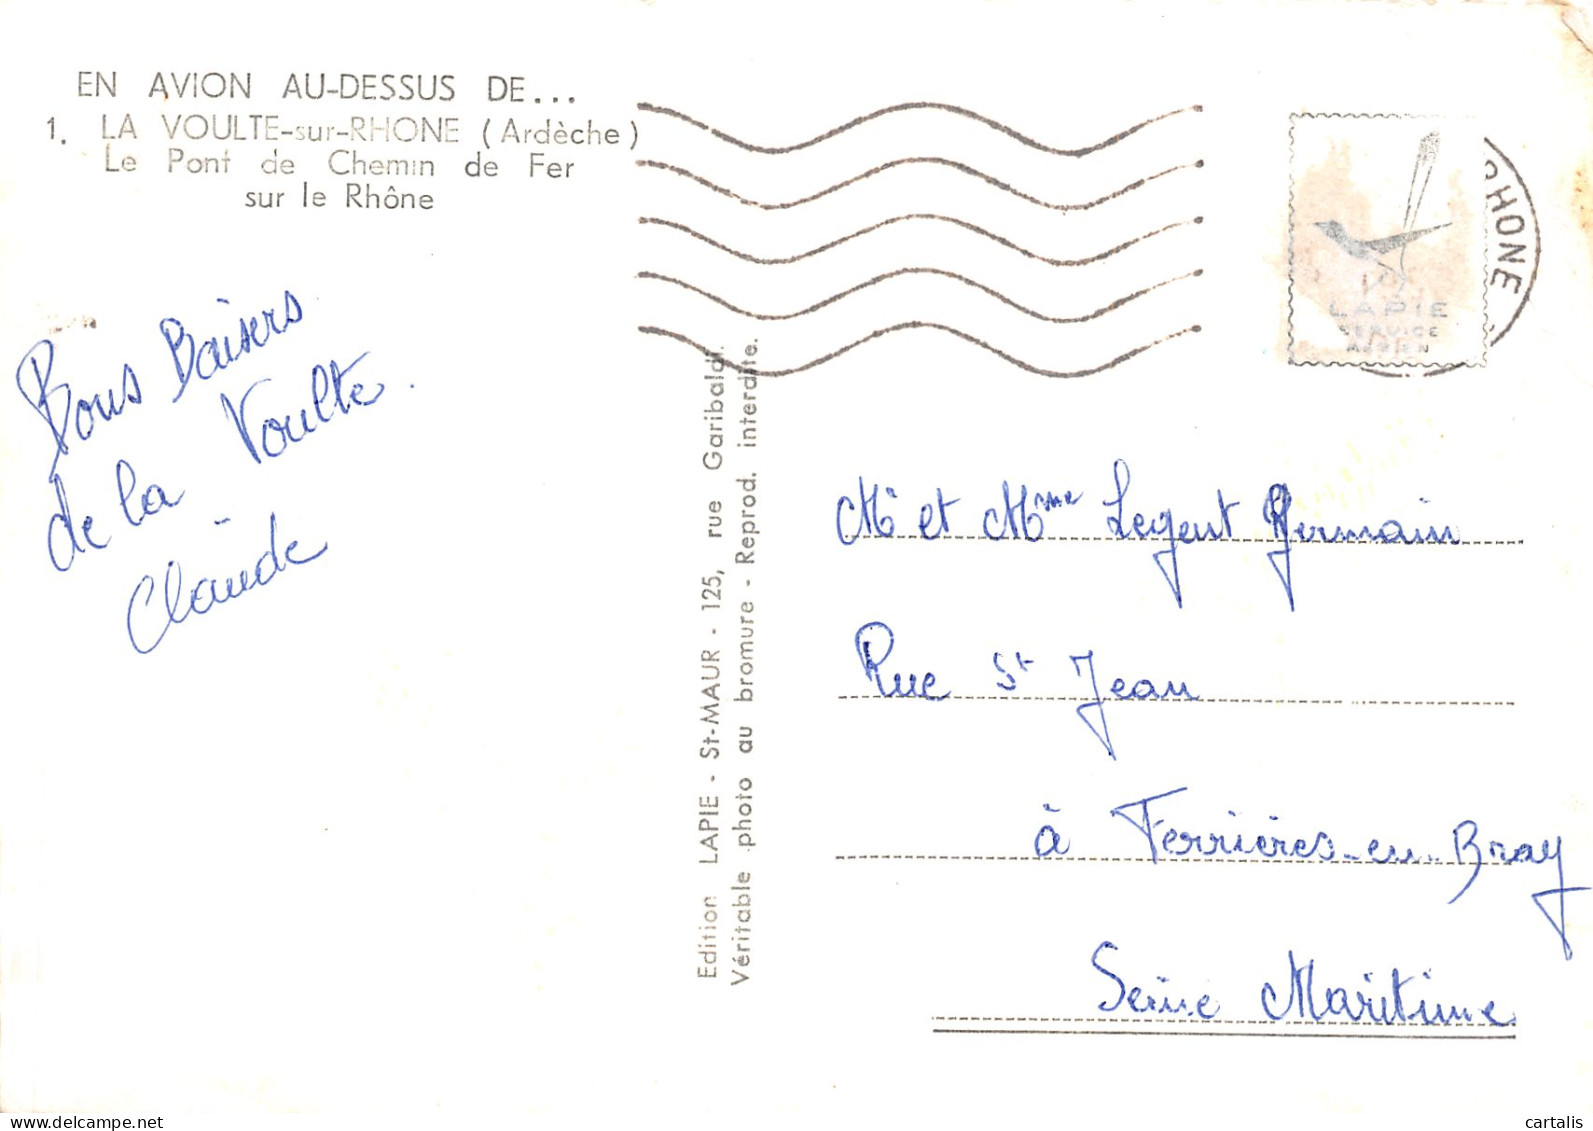 EN AVION AU-DESSUS DE...
1. LA VOULTE-sur-RHONE (Ardèche)
Le Pont de Chemin de Fer
sur le Rhône
Bons Baisers
de la Voulte.
Claude
Edition LAPIE - St-MAUR - 125, rue Garibaldi.
Véritable photo au bromure - Reprod. interdite.
RHONE
LAPIE
SERVICE
AERIEN
Mr et Mme Legent Germain
Rue St Jean
à Ferrières-en-Bray
Seine Maritime
cartalis.com